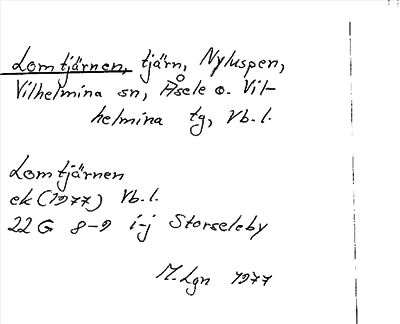 Lomtjärnen, tjärn, Nyluspen,
Vilhelmina sn, Åsele o. Vil-
helmina tg, Vb. l.
Lomtjärnen
ek (1977) Vb. l.
22 G 8-9 i-j Storseleby
M. Lgn 1977